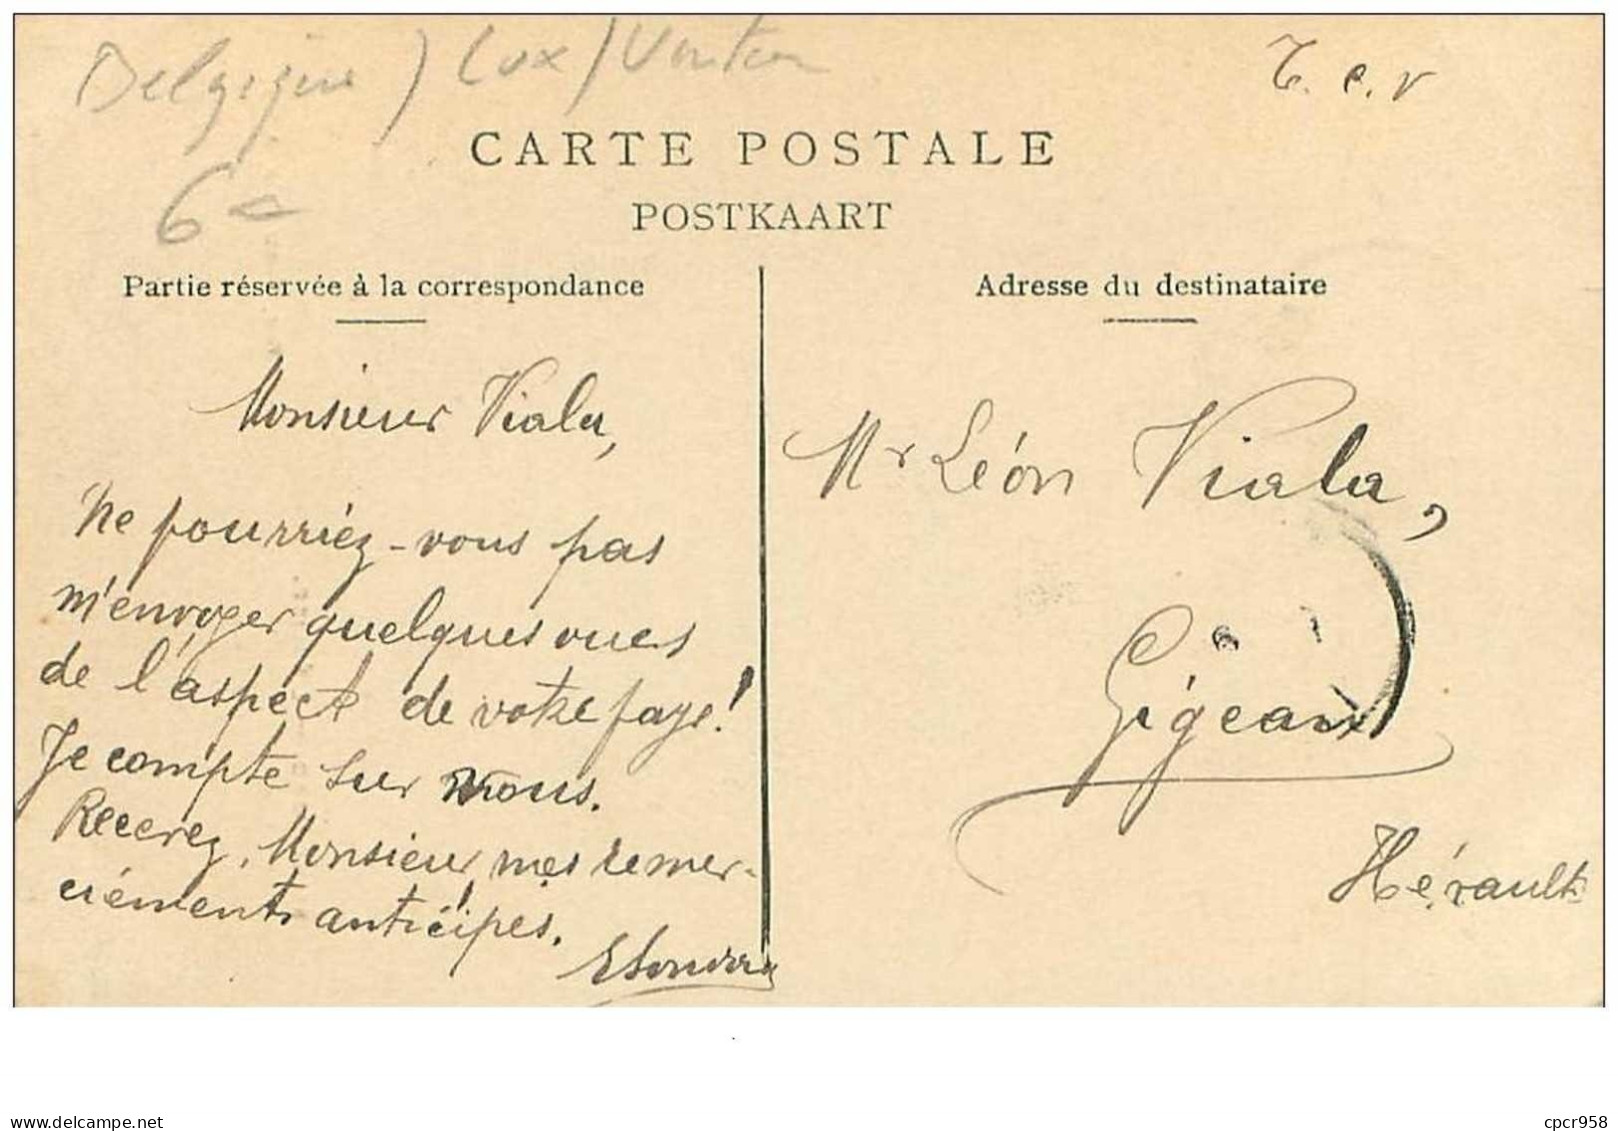 Belgique / Lux / Virton
T. c. v
6 =
CARTE POSTALE
POSTKAART
Partie réservée à la correspondance
Monsieur Viala,
Ne pourriéz-vous pas
m'envoyer quelques vues
de l'aspect de votre pays!
Je compte sur vous.
Recevez, Monsieur, mes remer-
ciéments anticipés.
Adresse du destinataire
Mr Léon Viala,
Gigean
Hérault
delcampe.net
cpcr958